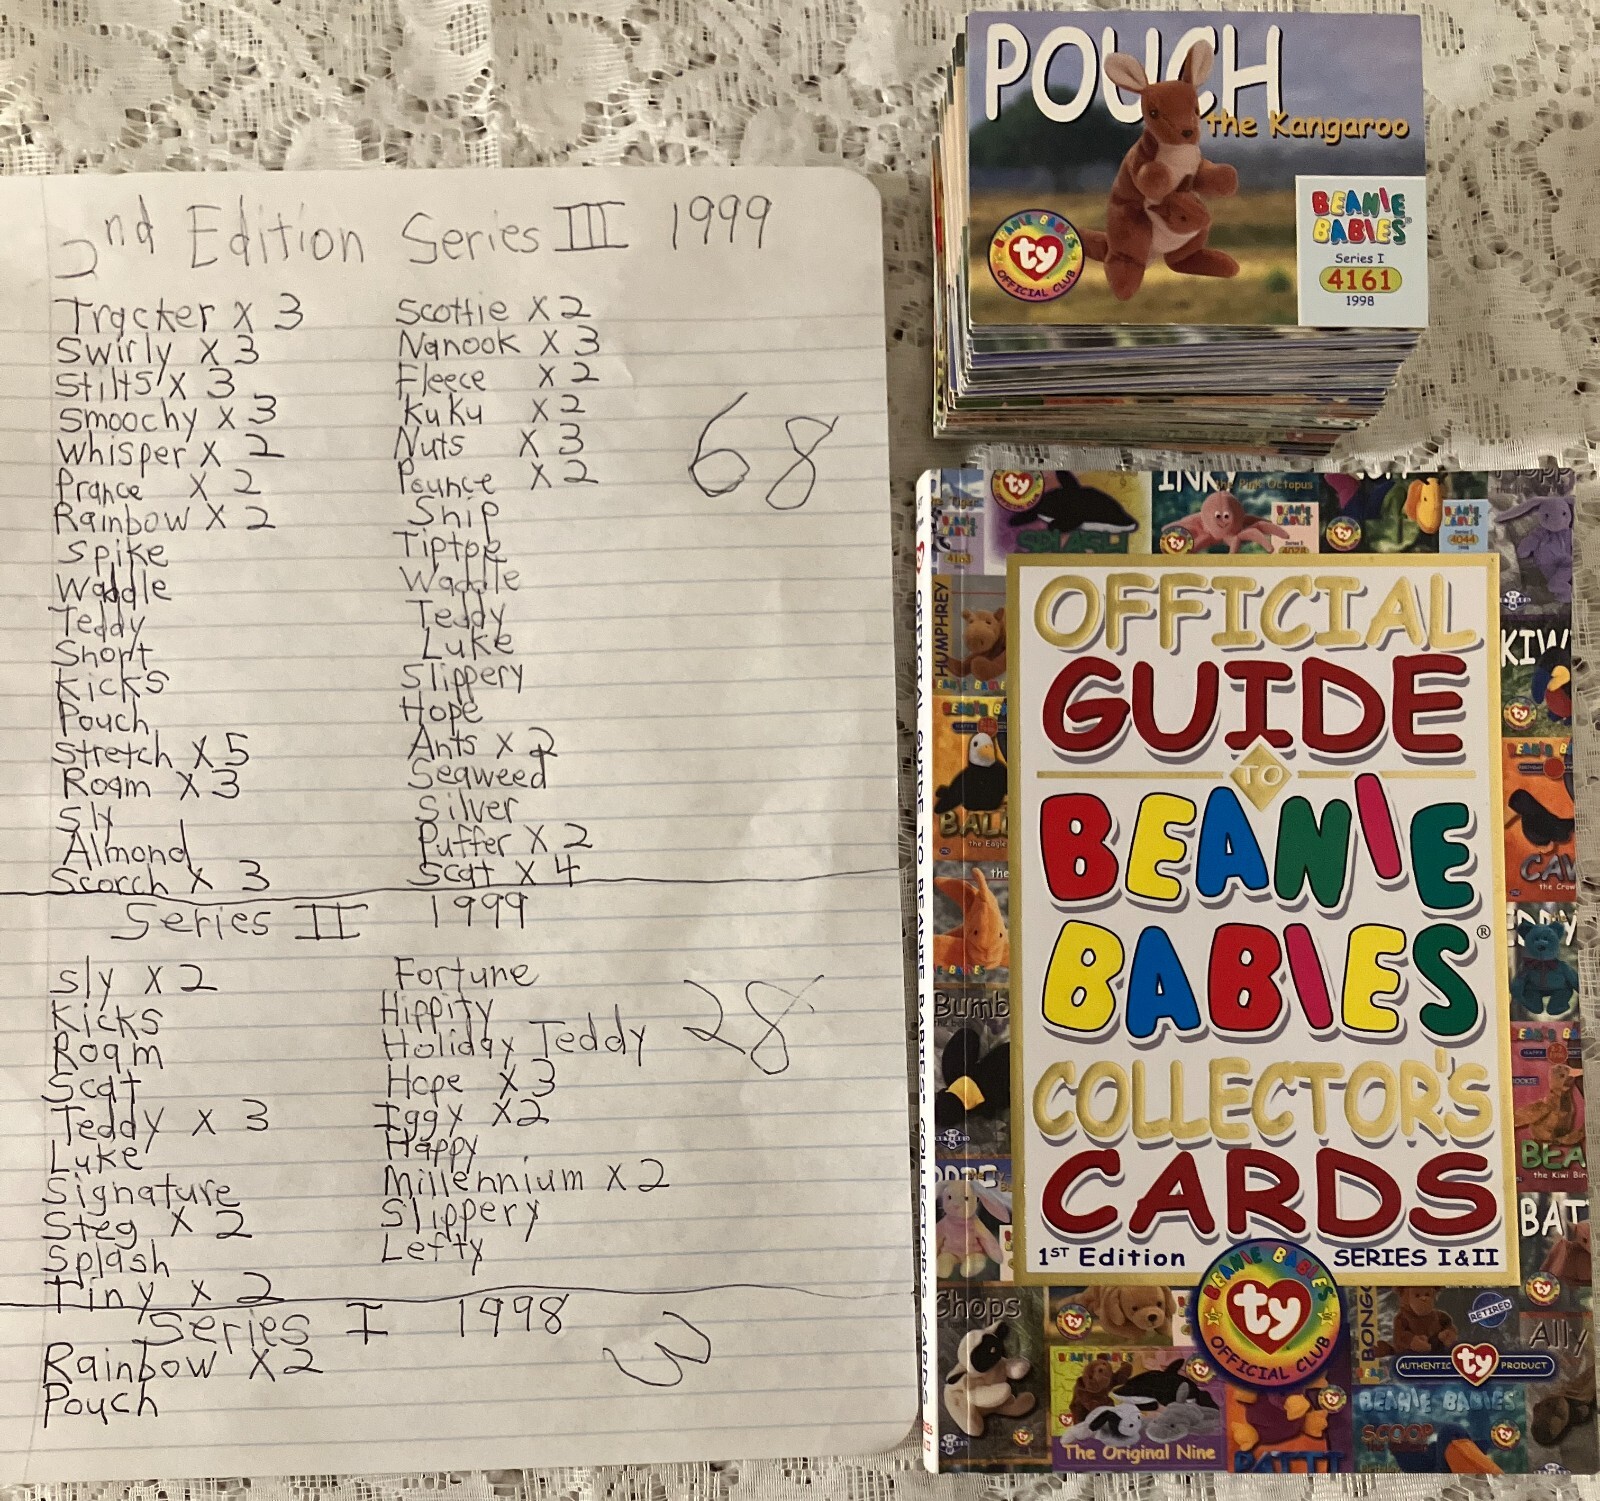 2nd Edition Series III 1999
Tracker X 3
Swirly X 3
Stilts X 3
Smoochy X 3
Whisper X 2
Prance X 2
Rainbow X 2
Spike
Waddle
Teddy
Short
Kicks
Pouch
Stretch X 5
Roam X 3
Sly
Almond
Scorch X 3
Scottie X 2
Nanook X 3
Fleece X 2
KuKu X 2
Nuts X 3
Pounce X 2
Ship
Tiptoe
Waddle
Teddy
Luke
Slippery
Hope
Ants X 2
Seaweed
Silver
Puffer X 2
Scat X 4
68
Series II 1999
Sly X 2
Kicks
Roam
Scat
Teddy X 3
Luke
Signature
Steg X 2
Splash
Tiny X 2
Fortune
Hippity
Holiday Teddy
Hope X 3
Iggy X2
Happy
Millennium X 2
Slippery
Lefty
28
Series I 1998
Rainbow X 2
Pouch
3
POUCH
the Kangaroo
BEANIE BABIES
ty
OFFICIAL CLUB
BEANIE
BABIES
Series I
4161
1998
OFFICIAL
GUIDE
TO
BEANIE
BABIES®
COLLECTOR'S
CARDS
1ST Edition
SERIES I & II
BEANIE BABIES
ty
OFFICIAL CLUB
OFFICIAL GUIDE TO BEANIE BABIES COLLECTOR'S CARDS
SPLASH
INK
the Pink Octopus
4163
4028
4044
HUMPHREY
KIW
BAL
the Eagle
CAW
the Crow
the
Bumb
BEA
the Kiwi Bir
BAT
Chops
The Original Nine
PATTI
BONGO
RETIRED
Ally
AUTHENTIC ty PRODUCT
BEANIE BABIES
SCOOP